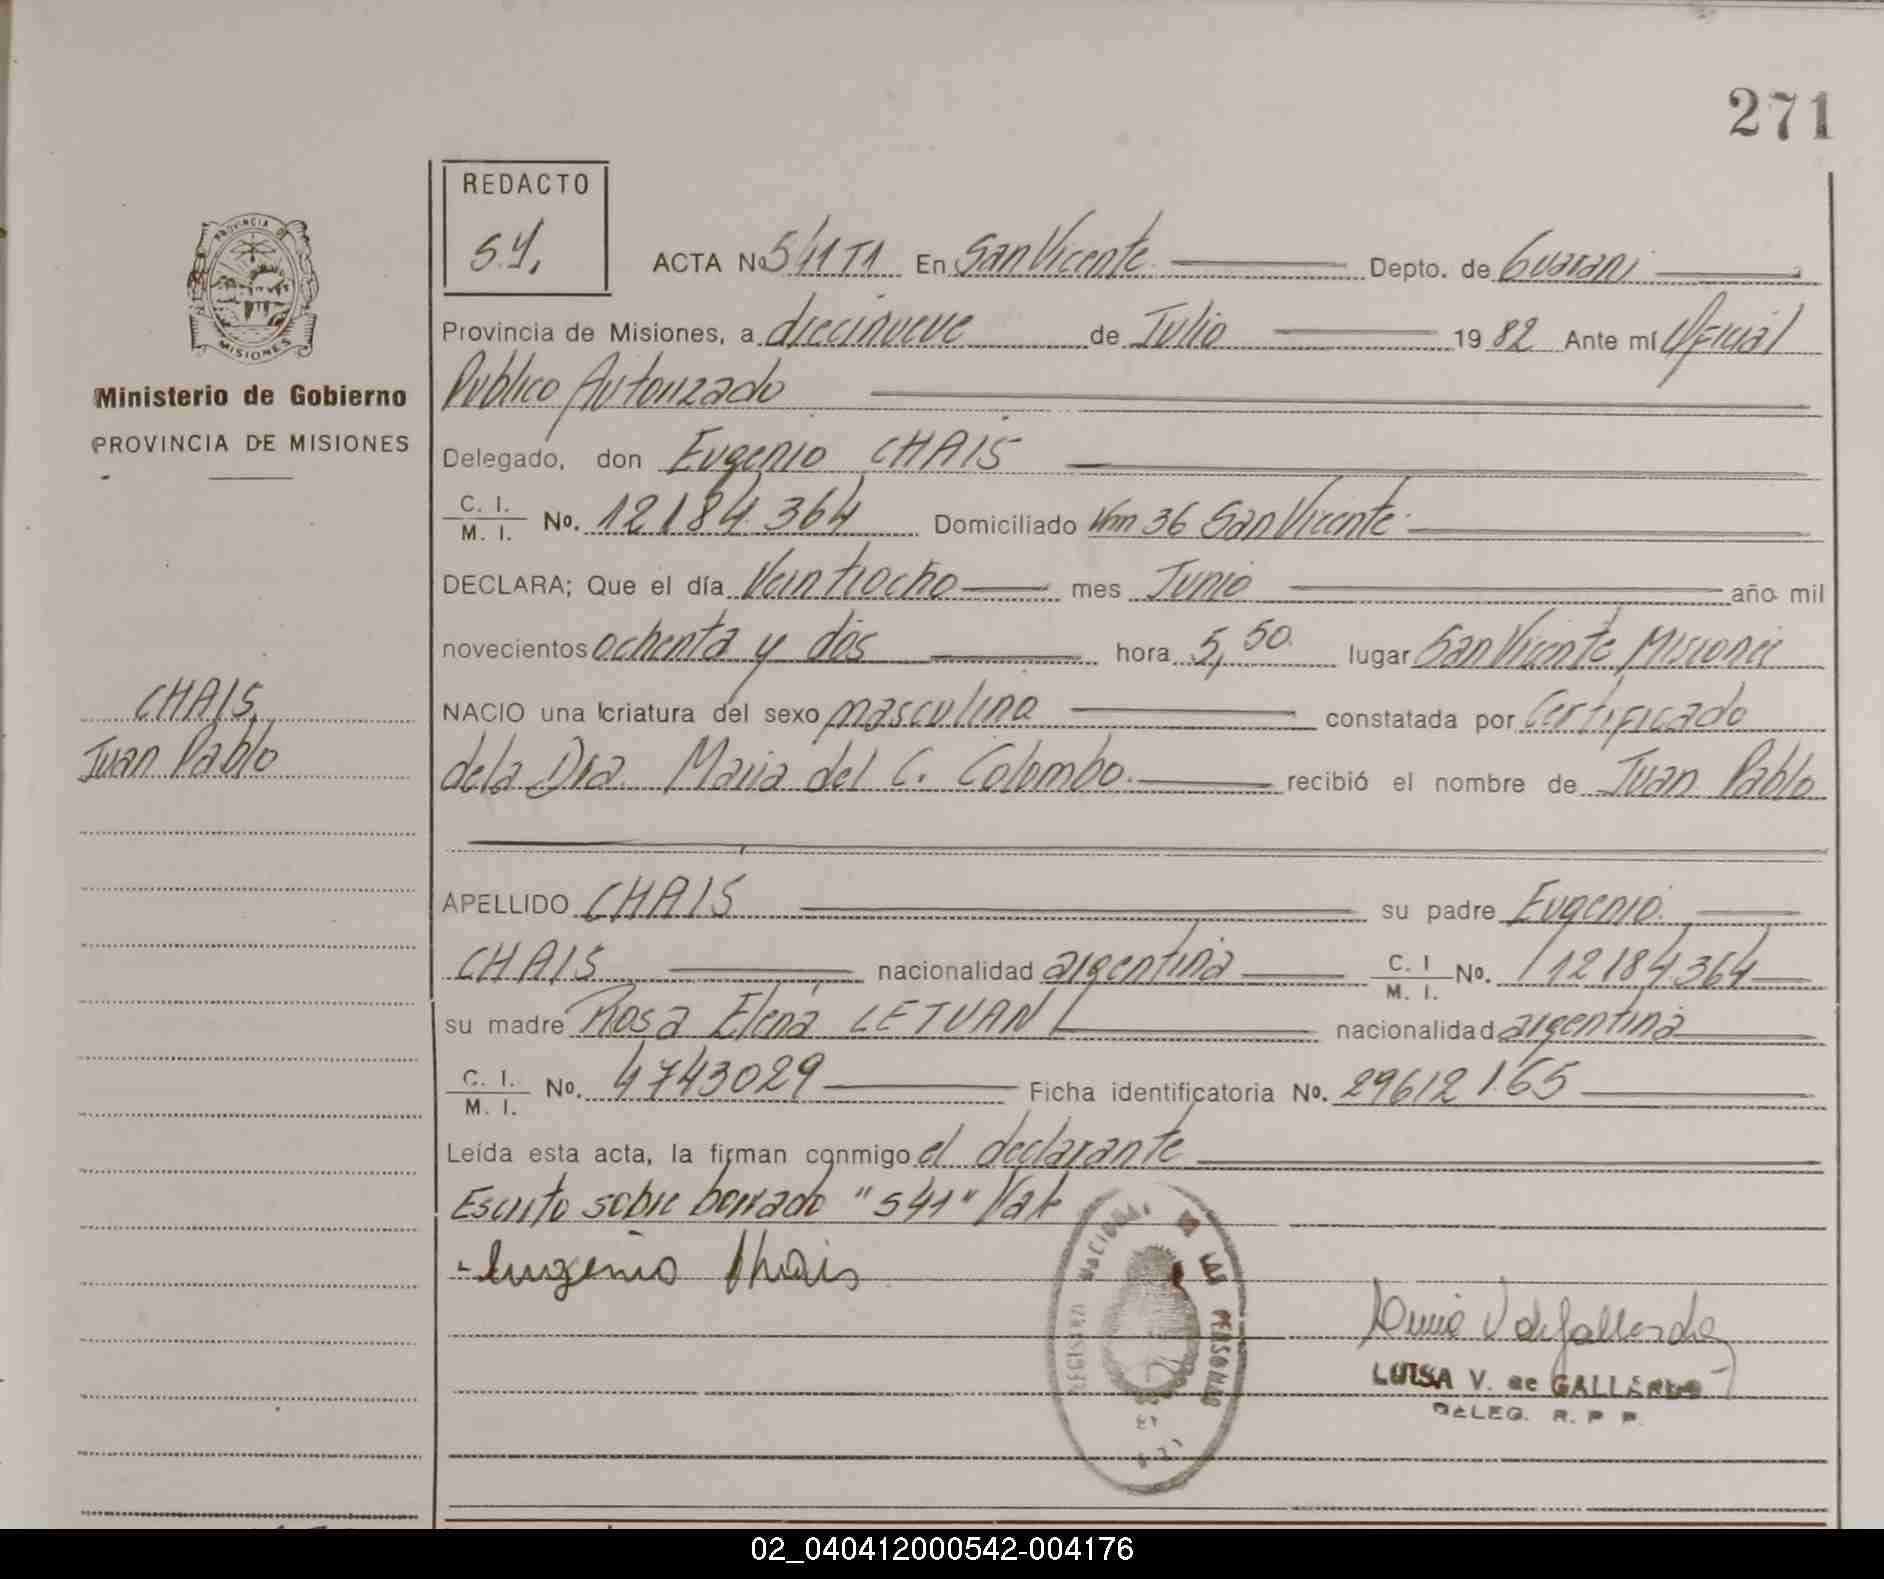 271
REDACTO
S.Y.
PROVINCIA DE
MISIONES
Ministerio de Gobierno
PROVINCIA DE MISIONES
ACTA No 541T1 En San Vicente Depto. de Guarani
Provincia de Misiones, a diecinueve de Julio 1982 Ante mí Oficial
Publico Autorizado
Delegado, don Eugenio CHAIS
C. I.
M. I. No. 12184.364 Domiciliado Km 36 San Vicente
DECLARA; Que el día Veintiocho mes Junio año mil
novecientos ochenta y dos hora 5,50 lugar San Vicente Misiones
CHAIS
Juan Pablo
NACIO una criatura del sexo masculino constatada por Certificado
de la Dra. Maria del C. Colombo. recibió el nombre de Juan Pablo
APELLIDO CHAIS su padre Eugenio
CHAIS nacionalidad argentina C. I
M. I. No. 12184364
su madre Rosa Elena LETUAN nacionalidad argentina
C. I.
M. I. No. 4743029 Ficha identificatoria No. 29612165
Leída esta acta, la firman conmigo el declarante
Escrito sobre borrado "541" Vale
Eugenio Chais
REGISTRO NACIONAL DE PERSONAS
LUISA V. de GALLARDO
DELEG. R. P. P.
02_040412000542-004176